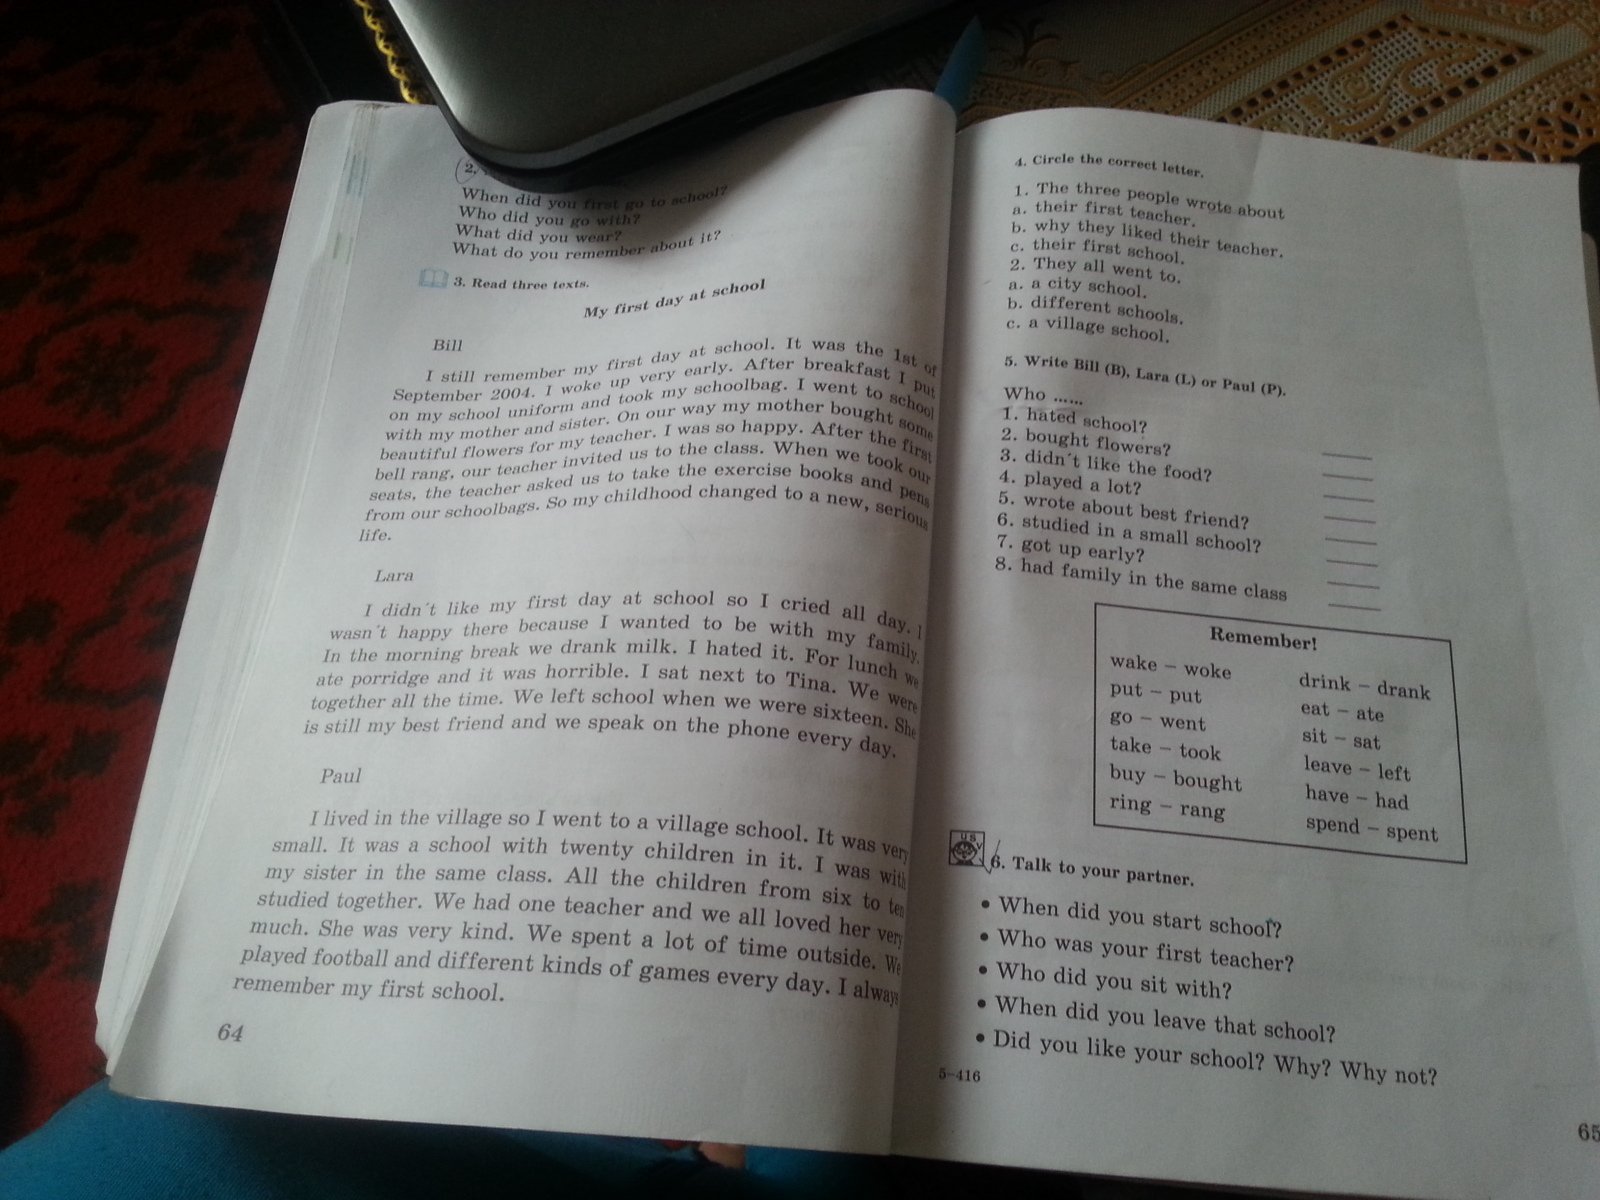 2.
When did you first go to school?
Who did you go with?
What did you wear?
What do you remember about it?
3. Read three texts.
My first day at school
Bill
I still remember my first day at school. It was the 1st of
September 2004. I woke up very early. After breakfast I put
on my school uniform and took my schoolbag. I went to school
with my mother and sister. On our way my mother bought some
beautiful flowers for my teacher. I was so happy. After the first
bell rang, our teacher invited us to the class. When we took our
seats, the teacher asked us to take the exercise books and pens
from our schoolbags. So my childhood changed to a new, serious
life.
Lara
I didn´t like my first day at school so I cried all day. I
wasn´t happy there because I wanted to be with my family.
In the morning break we drank milk. I hated it. For lunch we
ate porridge and it was horrible. I sat next to Tina. We were
together all the time. We left school when we were sixteen. She
is still my best friend and we speak on the phone every day.
Paul
I lived in the village so I went to a village school. It was very
small. It was a school with twenty children in it. I was with
my sister in the same class. All the children from six to ten
studied together. We had one teacher and we all loved her very
much. She was very kind. We spent a lot of time outside. We
played football and different kinds of games every day. I always
remember my first school.
64
4. Circle the correct letter.
1. The three people wrote about
a. their first teacher.
b. why they liked their teacher.
c. their first school.
2. They all went to.
a. a city school.
b. different schools.
c. a village school.
5. Write Bill (B), Lara (L) or Paul (P).
Who ......
1. hated school?
2. bought flowers?
3. didn´t like the food?
4. played a lot?
5. wrote about best friend?
6. studied in a small school?
7. got up early?
8. had family in the same class
Remember!
wake – woke
put – put
go – went
take – took
buy – bought
ring – rang
drink – drank
eat – ate
sit – sat
leave – left
have – had
spend – spent
6. Talk to your partner.
• When did you start school?
• Who was your first teacher?
• Who did you sit with?
• When did you leave that school?
• Did you like your school? Why? Why not?
5–416
65